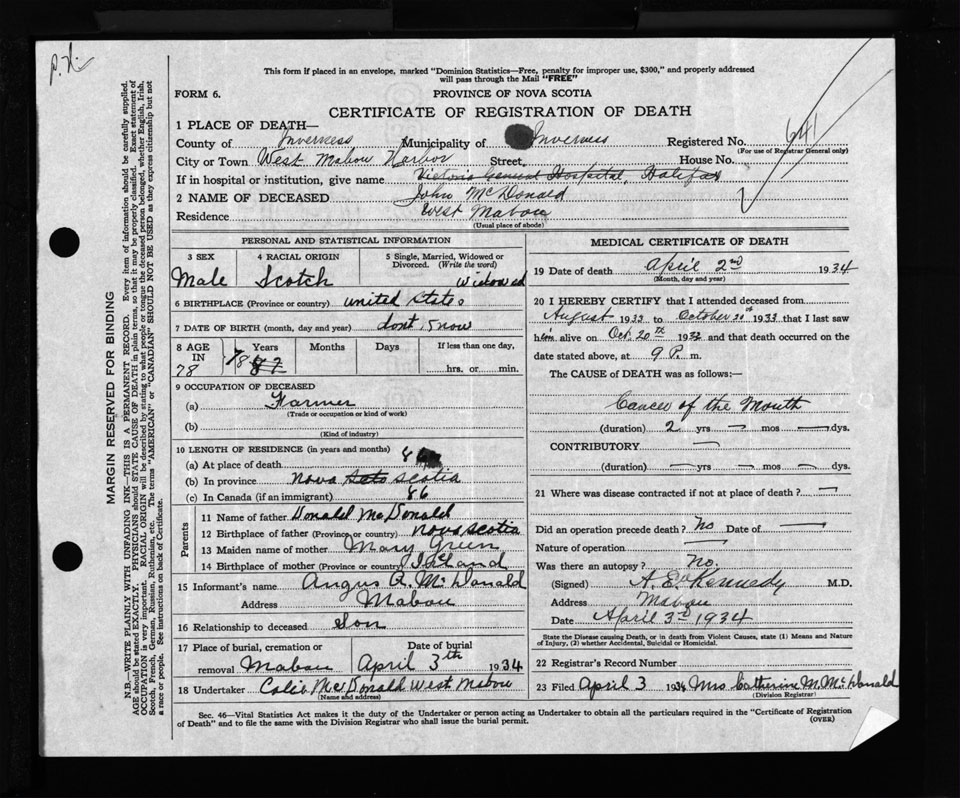 P.H.
This form if placed in an envelope, marked "Dominion Statistics—Free, penalty for improper use, $300," and properly addressed
will pass through the Mail "FREE"
FORM 6.
PROVINCE OF NOVA SCOTIA
CERTIFICATE OF REGISTRATION OF DEATH
1 PLACE OF DEATH—
County of Inverness Municipality of Inverness Registered No. 641
(For use of Registrar General only)
City or Town West Mabou Harbor Street House No.
If in hospital or institution, give name Victoria General Hospital, Halifax
2 NAME OF DECEASED John McDonald
Residence West Mabou
(Usual place of abode)
MARGIN RESERVED FOR BINDING
N.B.—WRITE PLAINLY WITH UNFADING INK—THIS IS A PERMANENT RECORD. Every item of information should be carefully supplied.
AGE should be stated EXACTLY. PHYSICIANS should STATE CAUSE OF DEATH in plain terms, so that it may be properly classified. Exact statement of
OCCUPATION is very important. RACIAL ORIGIN will be described by stating to what people or tongue the deceased person belonged, whether English, Irish,
Scotch, French, German, Russian, Ruthenian, etc. The terms "AMERICAN" or "CANADIAN" SHOULD NOT BE USED as they express citizenship but not
a race or people. See instructions on back of Certificate.
PERSONAL AND STATISTICAL INFORMATION
3 SEX 4 RACIAL ORIGIN 5 Single, Married, Widowed or
Divorced. (Write the word)
Male Scotch Widowed
6 BIRTHPLACE (Province or country) united states
7 DATE OF BIRTH (month, day and year) dont know
8 AGE Years Months Days If less than one day,
IN 78 87
78 hrs. or min.
9 OCCUPATION OF DECEASED
(a) Farmer
(Trade or occupation or kind of work)
(b)
(Kind of industry)
10 LENGTH OF RESIDENCE (in years and months)
(a) At place of death
(b) In province Nova Scotia
(c) In Canada (if an immigrant) 86
Parents
11 Name of father Donald McDonald
12 Birthplace of father (Province or country) Nova Scotia
13 Maiden name of mother Mary Green
14 Birthplace of mother (Province or country)
15 Informant's name Angus R. McDonald
Address Mabou
16 Relationship to deceased Son
17 Place of burial, cremation or Date of burial
removal Mabou April 3th 1934
18 Undertaker McDonald West Mabou
MEDICAL CERTIFICATE OF DEATH
19 Date of death April 2nd 1934
(Month, day and year)
20 I HEREBY CERTIFY that I attended deceased from
August 1933 to October 20th 1933 that I last saw
him alive on Oct. 20th 1933 and that death occurred on the
date stated above, at 9 P. m.
The CAUSE of DEATH was as follows:—
Cancer of the Mouth
(duration) 2 yrs — mos — dys.
CONTRIBUTORY —
(duration) — yrs — mos — dys.
21 Where was disease contracted if not at place of death? —
Did an operation precede death? No Date of —
Nature of operation —
Was there an autopsy? No.
(Signed) A. E. Kennedy M.D.
Address Mabou
Date April 3rd 1934
State the Disease causing Death, or in death from Violent Causes, state (1) Means and Nature
of Injury, (2) whether Accidental, Suicidal or Homicidal.
22 Registrar's Record Number
23 Filed April 3 1934 Mrs Catherine M. McDonald
(Division Registrar)
Sec. 46—Vital Statistics Act makes it the duty of the Undertaker or person acting as Undertaker to obtain all the particulars required in the "Certificate of Registration
of Death" and to file the same with the Division Registrar who shall issue the burial permit.
(OVER)